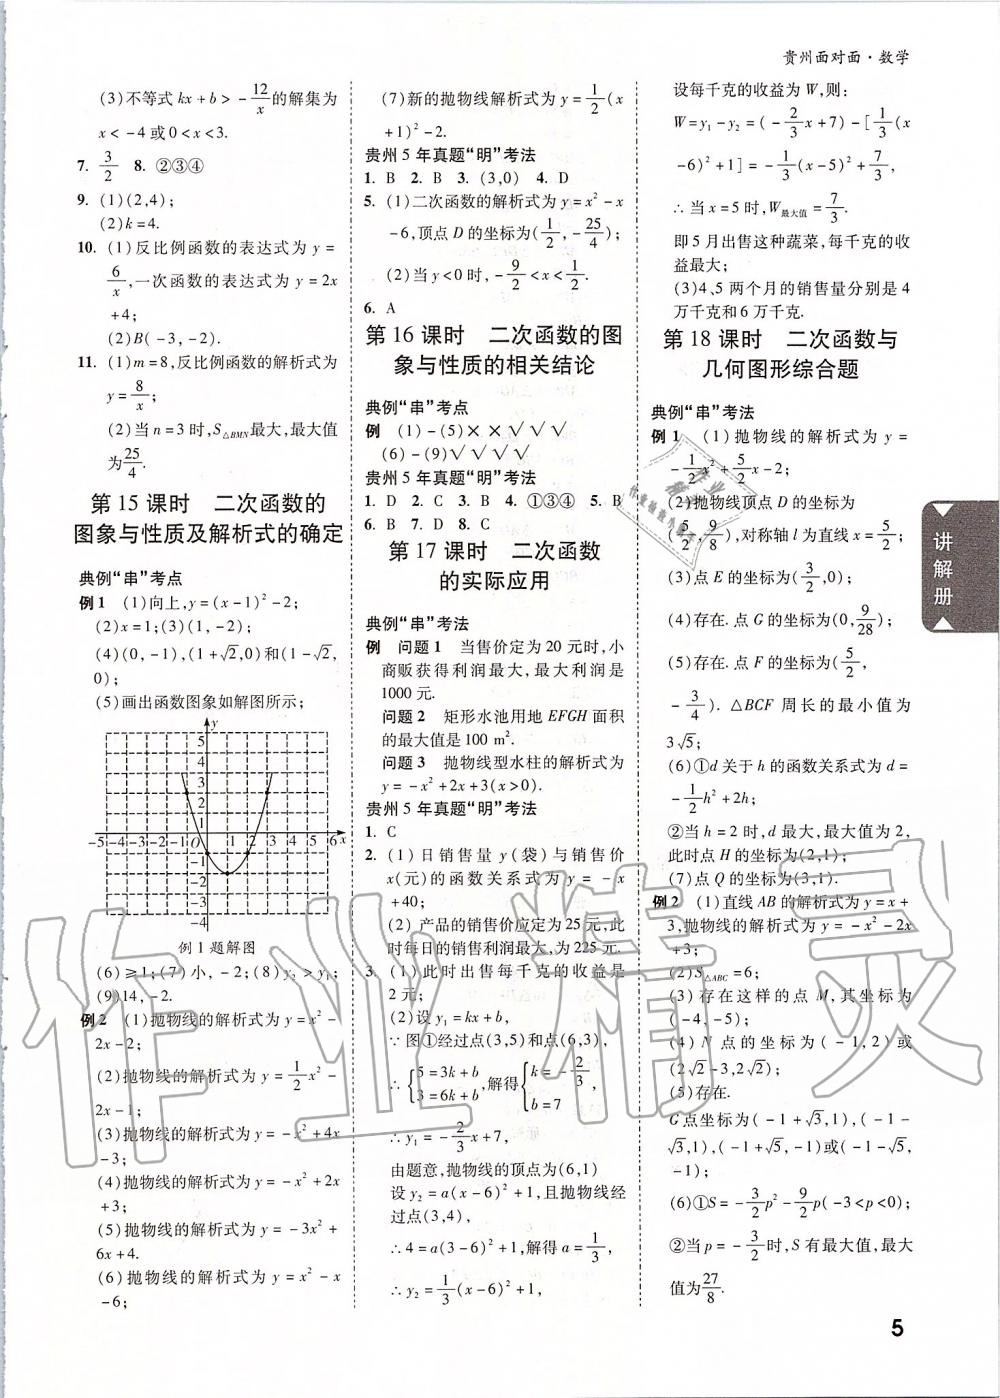 贵州面对面·数学
(3)不等式kx+b>-12/x的解集为
x<-4或0<x<3.
7. 3/2 8. ②③④
9. (1)(2,4);
(2)k=4.
10. (1)反比例函数的表达式为y=
6/x,一次函数的表达式为y=2x
+4;
(2)B(-3,-2).
11. (1)m=8,反比例函数的解析式为
y=8/x;
(2)当n=3时,S△BMN最大,最大值
为25/4.
第15课时 二次函数的
图象与性质及解析式的确定
典例“串”考点
例1 (1)向上,y=(x-1)²-2;
(2)x=1;(3)(1,-2);
(4)(0,-1),(1+√2,0)和(1-√2,
0);
(5)画出函数图象如解图所示;
y
5
4
3
2
1
-5 -4 -3 -2 -1 O 1 2 3 4 5 6 x
-1
-2
-3
-4
例1题解图
(6)≥1;(7)小,-2;(8)y₃>y₁;
(9)14,-2.
例2 (1)抛物线的解析式为y=x²-
2x-2;
(2)抛物线的解析式为y=1/2x²-
2x-1;
(3)抛物线的解析式为y=-x²+4x
-3;
(4)抛物线的解析式为y=-x²+2x
+3;
(5)抛物线的解析式为y=-3x²+
6x+4.
(6)抛物线的解析式为y=x²-x
-6;
(7)新的抛物线解析式为y=1/2(x
+1)²-2.
贵州5年真题“明”考法
1. B 2. B 3. (3,0) 4. D
5. (1)二次函数的解析式为y=x²-x
-6,顶点D的坐标为(1/2,-25/4);
(2)当y<0时,-9/2<x<1/2.
6. A
第16课时 二次函数的图
象与性质的相关结论
典例“串”考点
例 (1)-(5)××√√√
(6)-(9)√√√√
贵州5年真题“明”考法
1. D 2. C 3. C 4. ①③④ 5. B
6. B 7. D 8. C
第17课时 二次函数
的实际应用
典例“串”考法
例 问题1 当售价定为20元时,小
商贩获得利润最大,最大利润是
1000元.
问题2 矩形水池用地EFGH面积
的最大值是100 m².
问题3 抛物线型水柱的解析式为
y=-x²+2x+3(x>0).
贵州5年真题“明”考法
1. C
2. (1)日销售量y(袋)与销售价
x(元)的函数关系式为y=-x
+40;
(2)产品的销售价应定为25元,此
时每日的销售利润最大,为225元.
3. (1)此时出售每千克的收益是
2元;
(2)设y₁=kx+b,
∵图①经过点(3,5)和点(6,3),
∴{5=3k+b 3=6k+b,解得{k=-2/3 b=7,
∴y₁=-2/3x+7,
由题意,抛物线的顶点为(6,1)
设y₂=a(x-6)²+1,且抛物线经
过点(3,4),
∴4=a(3-6)²+1,解得a=1/3,
∴y₂=1/3(x-6)²+1,
设每千克的收益为W,则:
W=y₁-y₂=(-2/3x+7)-[1/3(x
-6)²+1]=-1/3(x-5)²+7/3,
∴当x=5时,W最大值=7/3.
即5月出售这种蔬菜,每千克的收
益最大;
(3)4,5两个月的销售量分别是4
万千克和6万千克.
第18课时 二次函数与
几何图形综合题
典例“串”考法
例1 (1)抛物线的解析式为y=
-1/2x²+5/2x-2;
(2)抛物线顶点D的坐标为
(5/2,9/8),对称轴l为直线x=5/2;
(3)点E的坐标为(3/2,0);
(4)存在.点G的坐标为(0,9/28);
(5)存在.点F的坐标为(5/2,
-3/4).△BCF周长的最小值为
3√5;
(6)①d关于h的函数关系式为d=
-1/2h²+2h;
②当h=2时,d最大,最大值为2,
此时点H的坐标为(2,1);
(7)点Q的坐标为(3,1).
例2 (1)直线AB的解析式为y=x+
3,抛物线的解析式为y=-x²-2x
+3;
(2)S△ABC=6;
(3)存在这样的点M,其坐标为
(-4,-5);
(4)N点的坐标为(-1,2)或
(2√2-3,2√2);
(5)存在.
G点坐标为(-1+√3,1),(-1-
√3,1),(-1+√5,-1)或(-1-√5,
-1);
(6)①S=-3/2p²-9/2p(-3<p<0);
②当p=-3/2时,S有最大值,最大
值为27/8.
讲解册
5
作业精灵